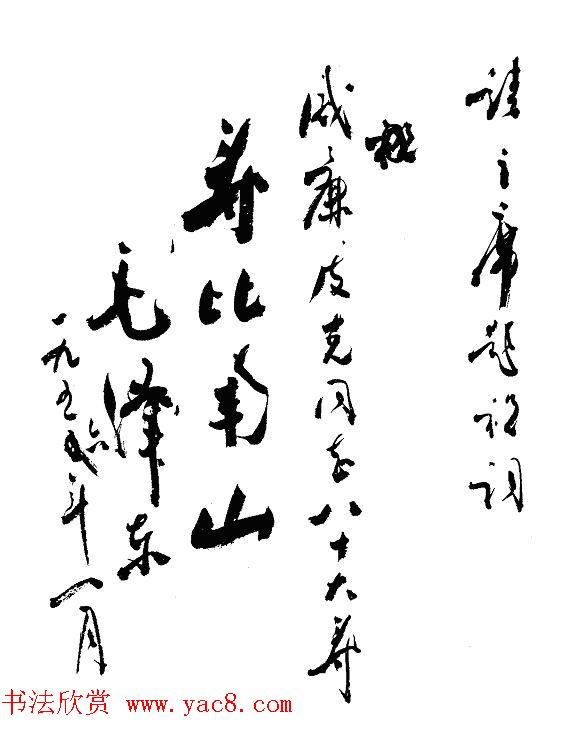 请主席题祝词
祝
威廉·皮克同志八十大寿
寿比南山
毛泽东
一九五六年一月
书法欣赏 www.yac8.com